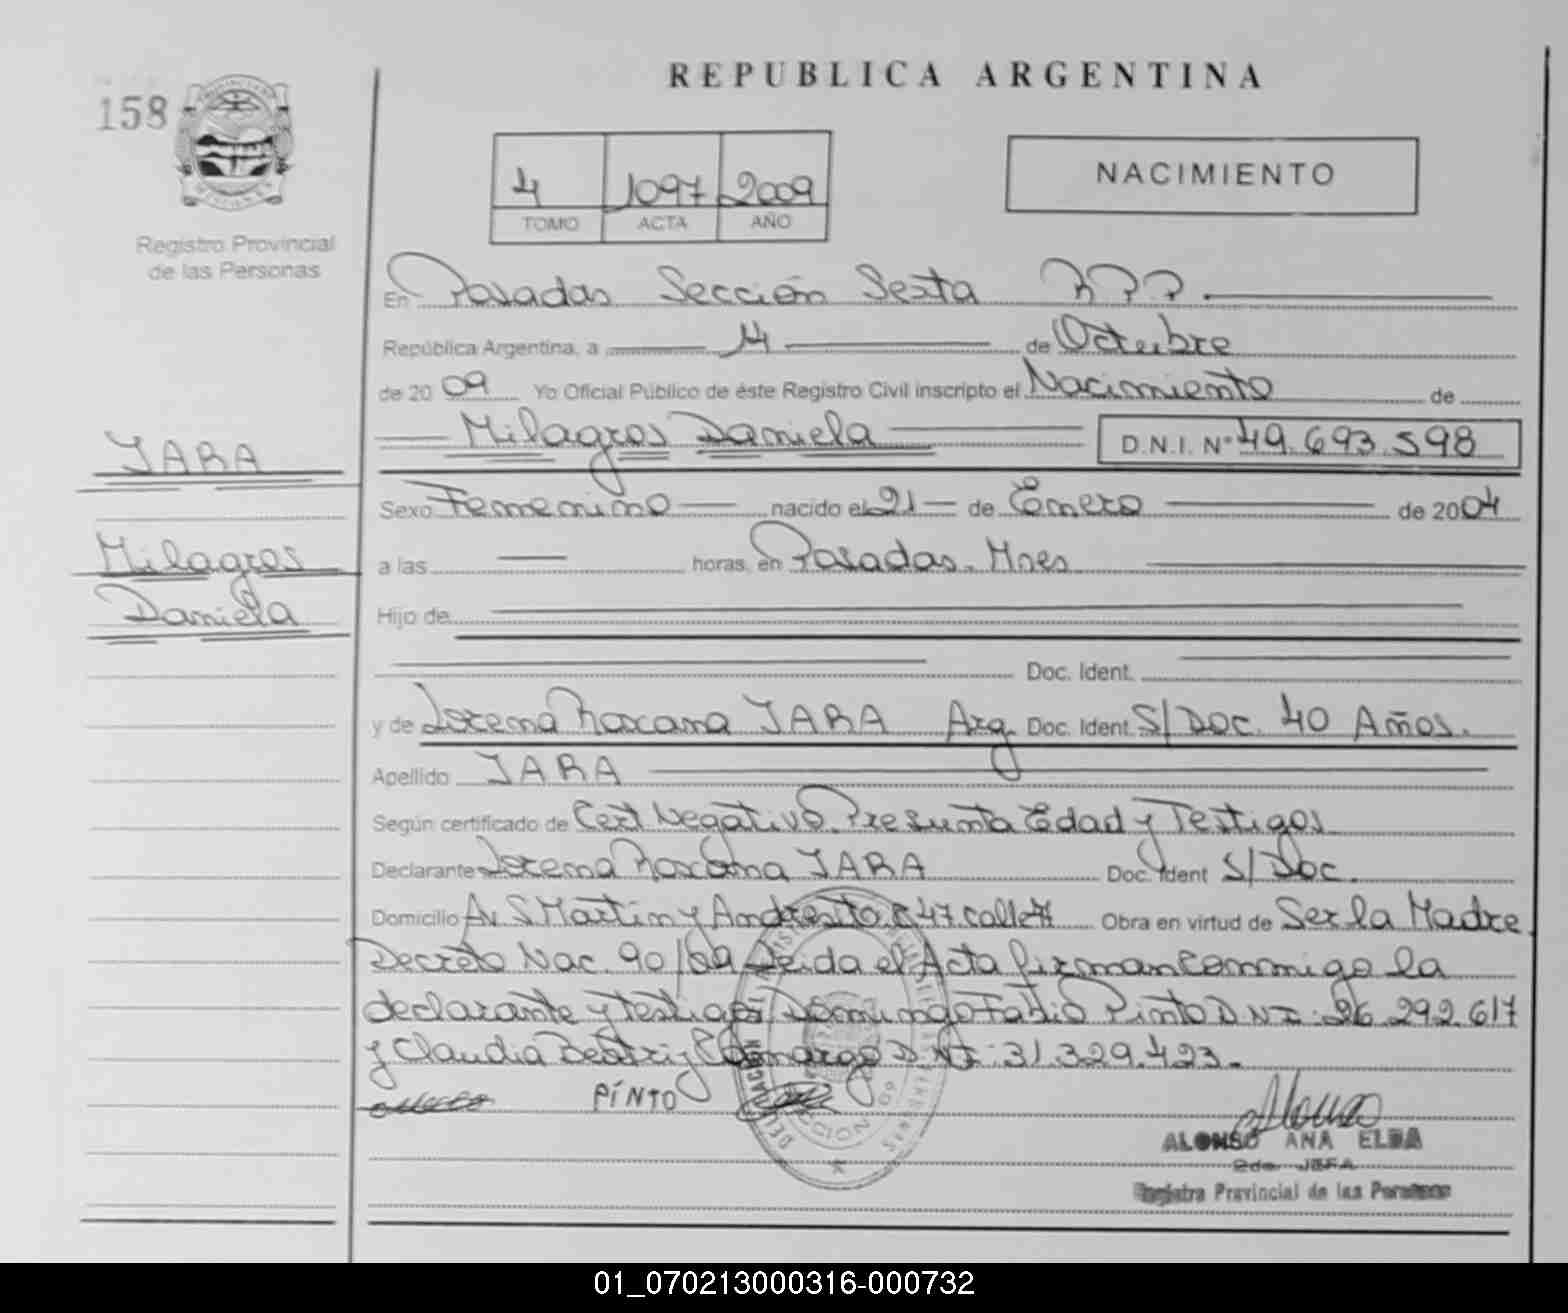 REPUBLICA ARGENTINA
158
NACIMIENTO
4 1097 2009
TOMO ACTA AÑO
Registro Provincial
de las Personas
En Posadas Sección Sexta R.P.P.
República Argentina, a 14 de Octubre
de 2009 Yo Oficial Público de éste Registro Civil inscripto el Nacimiento de
Milagros Daniela D.N.I. Nº 49.693.598
JARA
Milagros
Daniela
Sexo Femenino nacido el 21 de Enero de 2004
a las horas, en Posadas. Mnes
Hijo de
Doc. Ident.
y de Lorena Roxana JARA Arg. Doc. Ident. S/Doc. 40 Años.
Apellido JARA
Según certificado de Cert Negativo, Presunta Edad y Testigos
Declarante Lorena Roxana JARA Doc. Ident S/Doc.
Domicilio Av S.Martin y Andresito c 47. calle Obra en virtud de Ser la Madre
Decreto Nac. 90/09 Leida el Acta firman conmigo la
declarante y testigos Domingo Fabio Pinto DNI: 26.292.617
y Claudia Beatriz Camargo DNI: 31.329.423.
PÍNTO
ALONSO ANA ELBA
2da. JEFA
Registro Provincial de las Personas
01_070213000316-000732